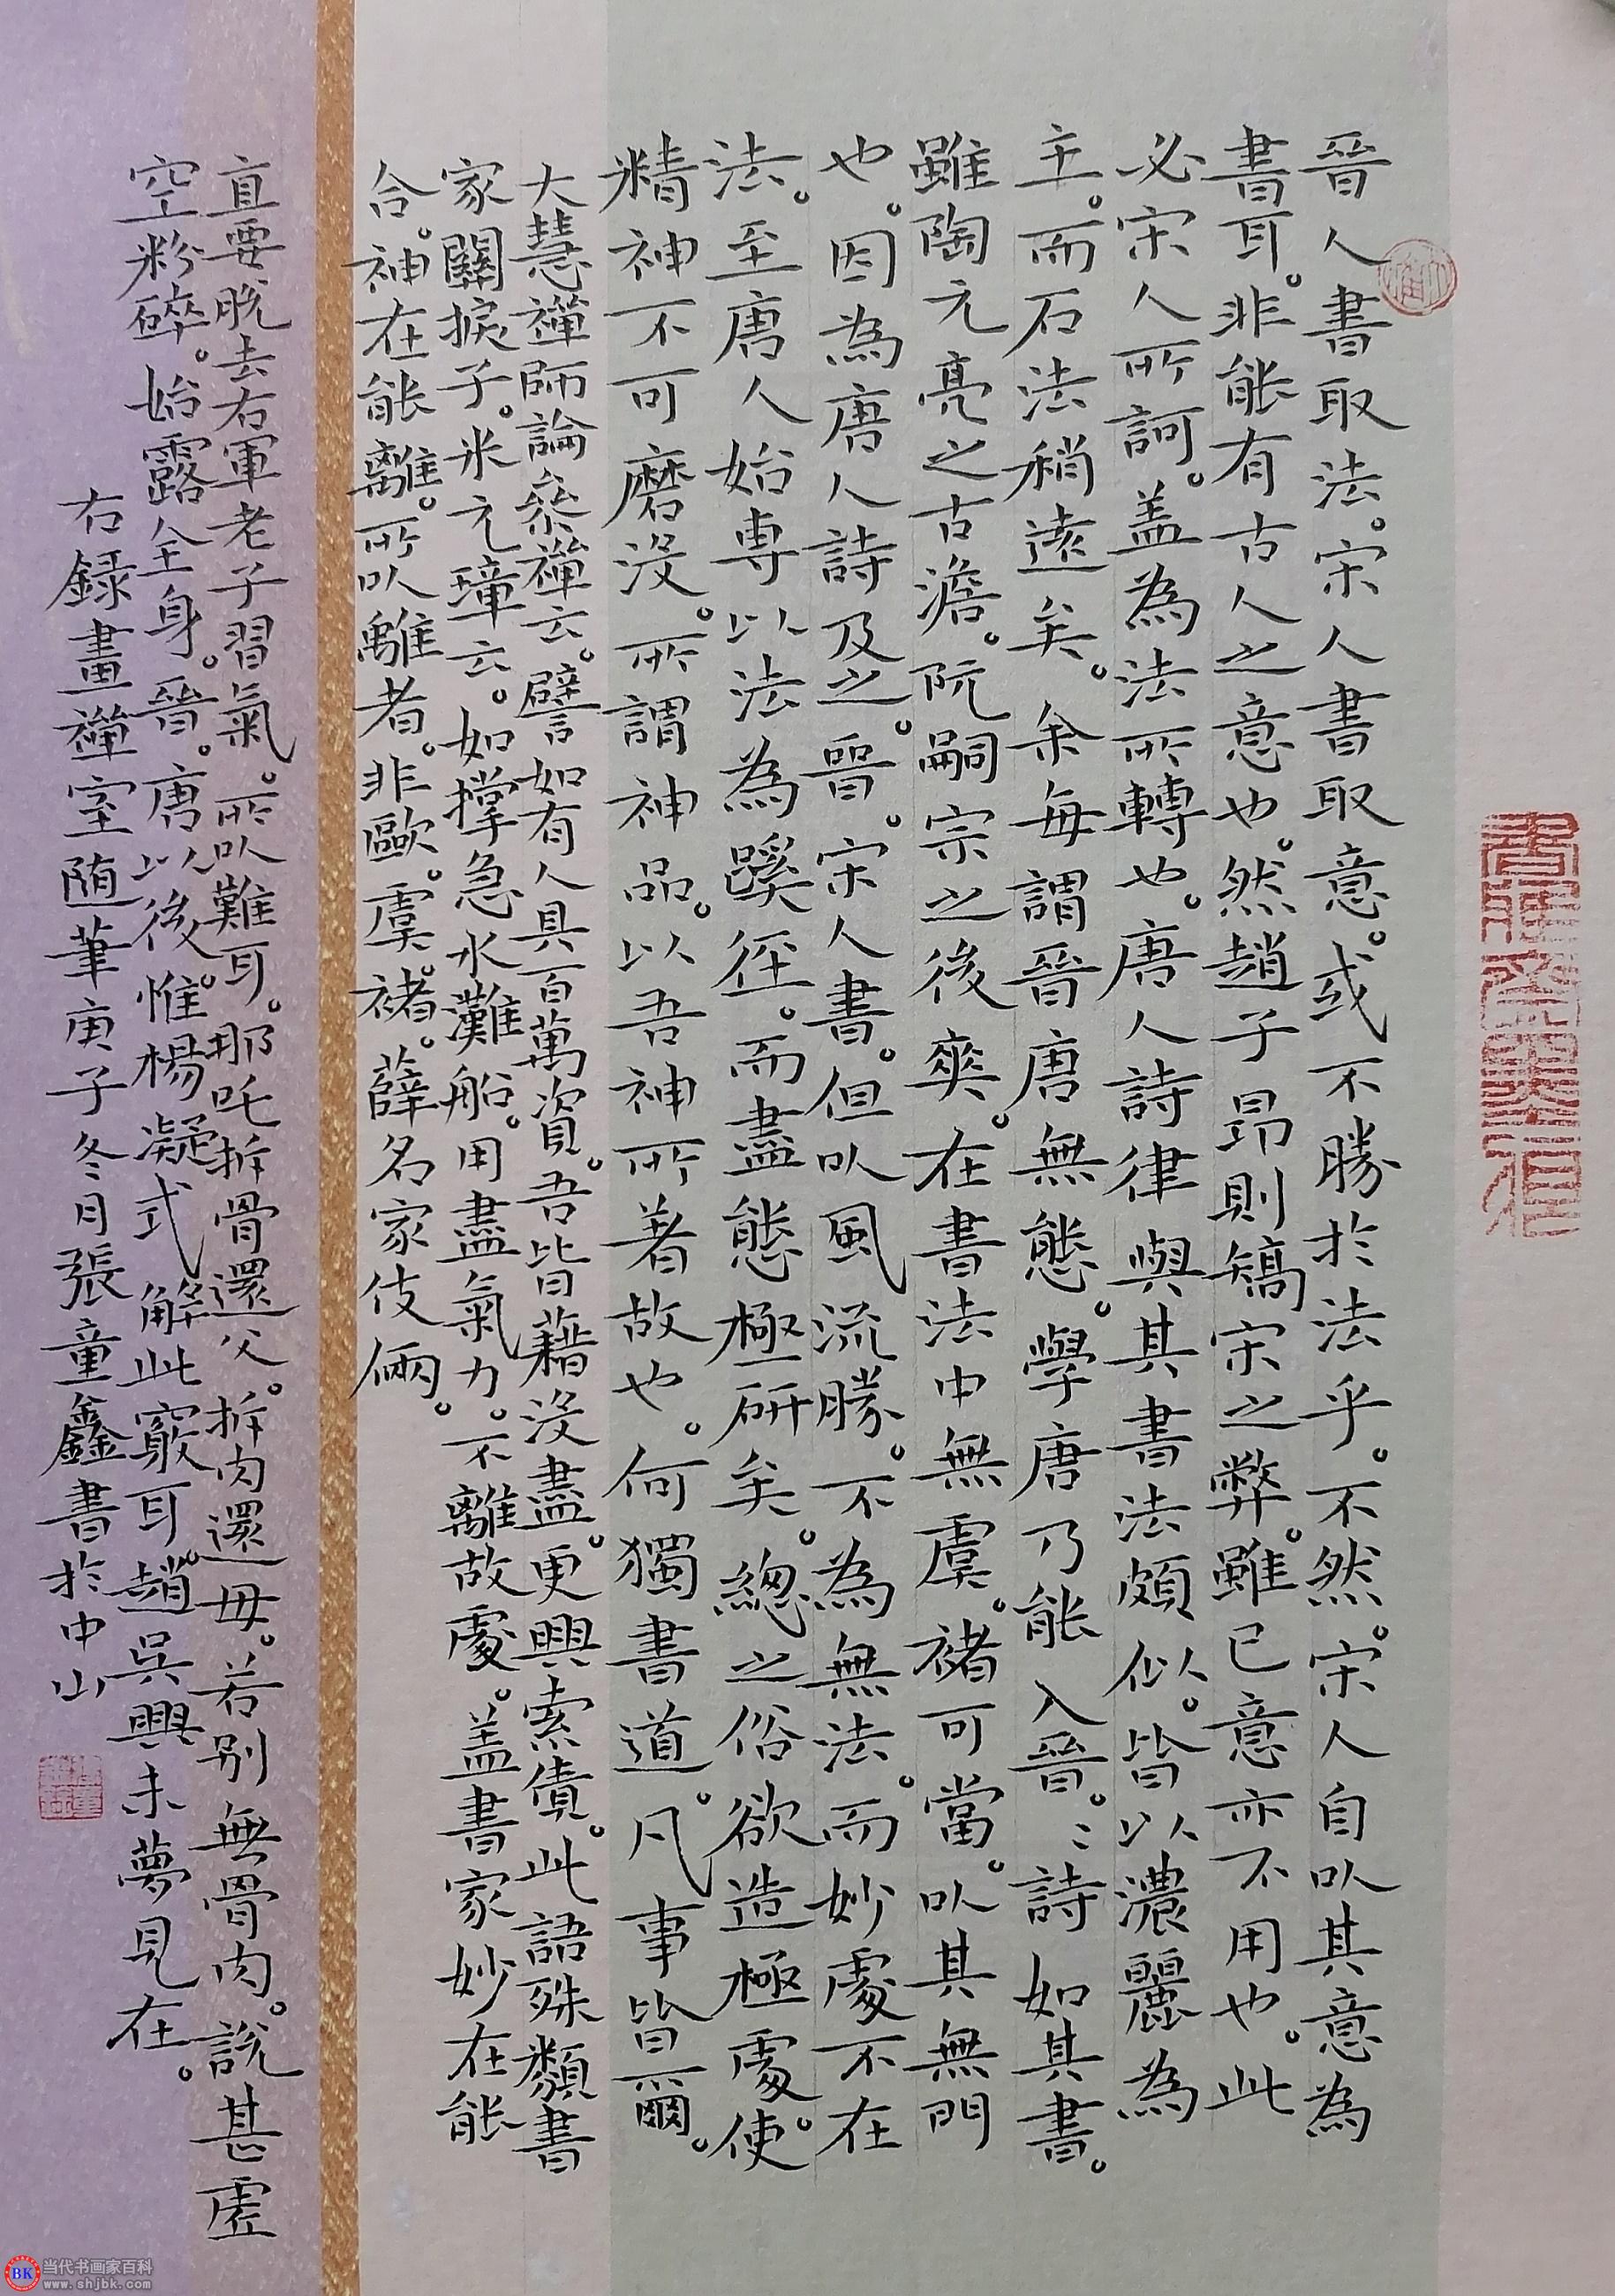 晉人書取法。宋人書取意。或不勝於法乎。不然。宋人自以其意為
書耳。非能有古人之意也。然趙子昂則矯宋之弊。雖已意亦不用也。此
必宋人所訶。盖為法所轉也。唐人詩律與其書法頗似。皆以濃麗為
主。而石法稍遠矣。余每謂晉唐無態。學唐乃能入晉。〻詩如其書。
雖陶元亮之古澹。阮嗣宗之後爽。在書法中無虞。褚可當。以其無門
也。因為唐人詩及之。晉。宋人書。但以風流勝。不為無法。而妙處不在
法。至唐人始專以法為蹊徑。而盡態極研矣。總之俗欲造極處。使
精神不可磨沒。所謂神品。以吾神所著故也。何獨書道。凡事皆爾。
大慧禪師論叅禪云。譬如有人具百萬資。吾皆藉沒盡。更興索債。此語殊類書
家關捩子。米元璋云。如撑急水灘船。用盡氣力。不離故處。盖書家妙在能
合。神在能離。所以離者。非歐。虞。褚。薛名家伎倆。
直要脫去右軍老子習氣。所以難耳。那吒拆骨還父。拆肉還母。若別無骨肉。說甚虛
空粉碎。始露全身。晉。唐以後。惟楊凝式解此竅耳。趙吳興未夢見在。
右錄畫禪室隨筆庚子冬月張童鑫書於中山
當代书画家百科
www.shjbk.com
BK